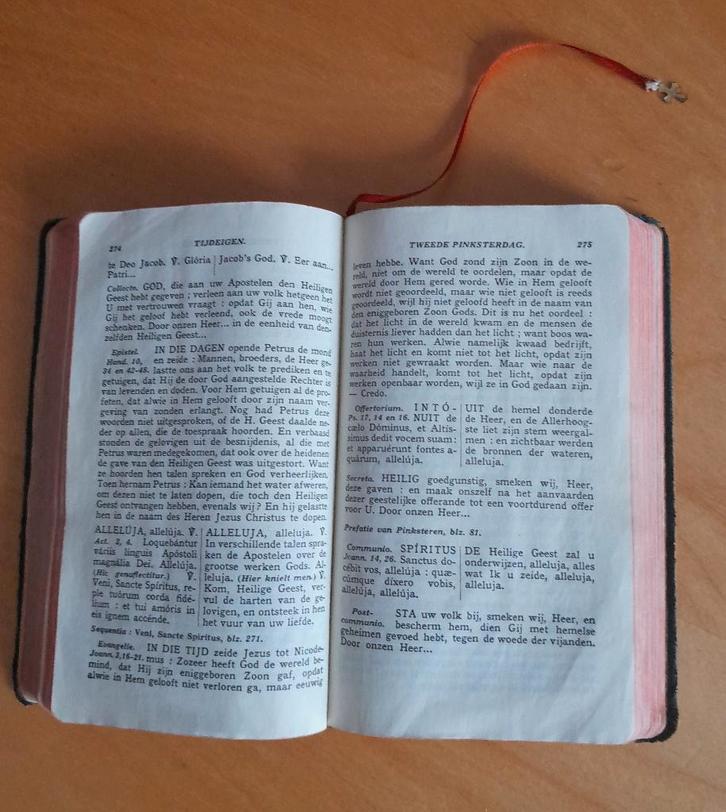 274 TIJDEIGEN.
te Deo Jacob. ℣. Glória
Patri...
Jacob's God. ℣. Eer aan...
Collecte. GOD, die aan uw Apostelen den Heiligen
Geest hebt gegeven; verleen aan uw volk hetgeen het
U met vertrouwen vraagt: opdat Gij aan hen, wie
Gij het geloof hebt verleend, ook de vrede moogt
schenken. Door onzen Heer... in de eenheid van den-
zelfden Heiligen Geest...
Epistel. IN DIE DAGEN opende Petrus de mond
Hand. 10, en zeide: Mannen, broeders, de Heer ge-
34 en 42-48. lastte ons aan het volk te prediken en te
getuigen, dat Hij de door God aangestelde Rechter is
van levenden en doden. Voor Hem getuigen al de pro-
feten, dat alwie in Hem gelooft door zijn naam ver-
geving van zonden erlangt. Nog had Petrus deze
woorden niet uitgesproken, of de H. Geest daalde ne-
der op allen, die de toespraak hoorden. En verbaasd
stonden de gelovigen uit de besnijdenis, al die met
Petrus waren medegekomen, dat ook over de heidenen
de gave van den Heiligen Geest was uitgestort. Want
ze hoorden hen talen spreken en God verheerlijken.
Toen hernam Petrus: Kan iemand het water afweren,
om dezen niet te laten dopen, die toch den Heiligen
Geest ontvangen hebben, evenals wij? En hij gelastte
hen in de naam des Heren Jezus Christus te dopen.
ALLELÚJA, allelúja. ℣.
Act. 2, 4. Loquebántur
váriis linguis Apóstoli
magnália Dei. Allelúja.
(Hic genuflectitur.) ℣.
Veni, Sancte Spíritus, re-
ple tuórum corda fidé-
lium: et tui amóris in
eis ignem accénde.
ALLELUJA, alleluja. ℣.
In verschillende talen spra-
ken de Apostelen over de
grootse werken Gods. Al-
leluja. (Hier knielt men.) ℣.
Kom, Heilige Geest, ver-
vul de harten van de ge-
lovigen, en ontsteek in hen
het vuur van uw liefde.
Sequentia: Veni, Sancte Spiritus, blz. 271.
Evangelie. IN DIE TIJD zeide Jezus tot Nicode-
Joann. 3,16-21. mus: Zozeer heeft God de wereld be-
mind, dat Hij zijn eniggeboren Zoon gaf, opdat
alwie in Hem gelooft niet verloren ga, maar eeuwig
TWEEDE PINKSTERDAG. 275
leven hebbe. Want God zond zijn Zoon in de we-
reld, niet om de wereld te oordelen, maar opdat de
wereld door Hem gered worde. Wie in Hem gelooft
wordt niet geoordeeld, maar wie niet gelooft is reeds
geoordeeld, wijl hij niet geloofd heeft in de naam van
den eniggeboren Zoon Gods. Dit is nu het oordeel:
dat het licht in de wereld kwam en de mensen de
duisternis liever hadden dan het licht; want boos wa-
ren hun werken. Alwie namelijk kwaad bedrijft,
haat het licht en komt niet tot het licht, opdat zijn
werken niet gewraakt worden. Maar wie naar de
waarheid handelt, komt tot het licht, opdat zijn
werken openbaar worden, wijl ze in God gedaan zijn.
— Credo.
Offertorium. INTÓ-
Ps. 17, 14 en 16. NUIT de
cælo Dóminus, et Altís-
simus dedit vocem suam:
et apparuérunt fontes a-
quárum, allelúja.
UIT de hemel donderde
de Heer, en de Allerhoog-
ste liet zijn stem weergal-
men: en zichtbaar werden
de bronnen der wateren,
alleluja.
Secreta. HEILIG goedgunstig, smeken wij, Heer,
deze gaven: en maak onszelf na het aanvaarden
dezer geestelijke offerande tot een voortdurend offer
voor U. Door onzen Heer...
Prefatie van Pinksteren, blz. 81.
Communio. SPÍRITUS
Joann. 14, 26. Sanctus do-
cébit vos, allelúja: quæ-
cúmque díxero vobis,
allelúja, allelúja.
DE Heilige Geest zal u
onderwijzen, alleluja, alles
wat Ik u zeide, alleluja,
alleluja.
Post- STA uw volk bij, smeken wij, Heer, en
communio. bescherm hem, dien Gij met hemelse
geheimen gevoed hebt, tegen de woede der vijanden.
Door onzen Heer...